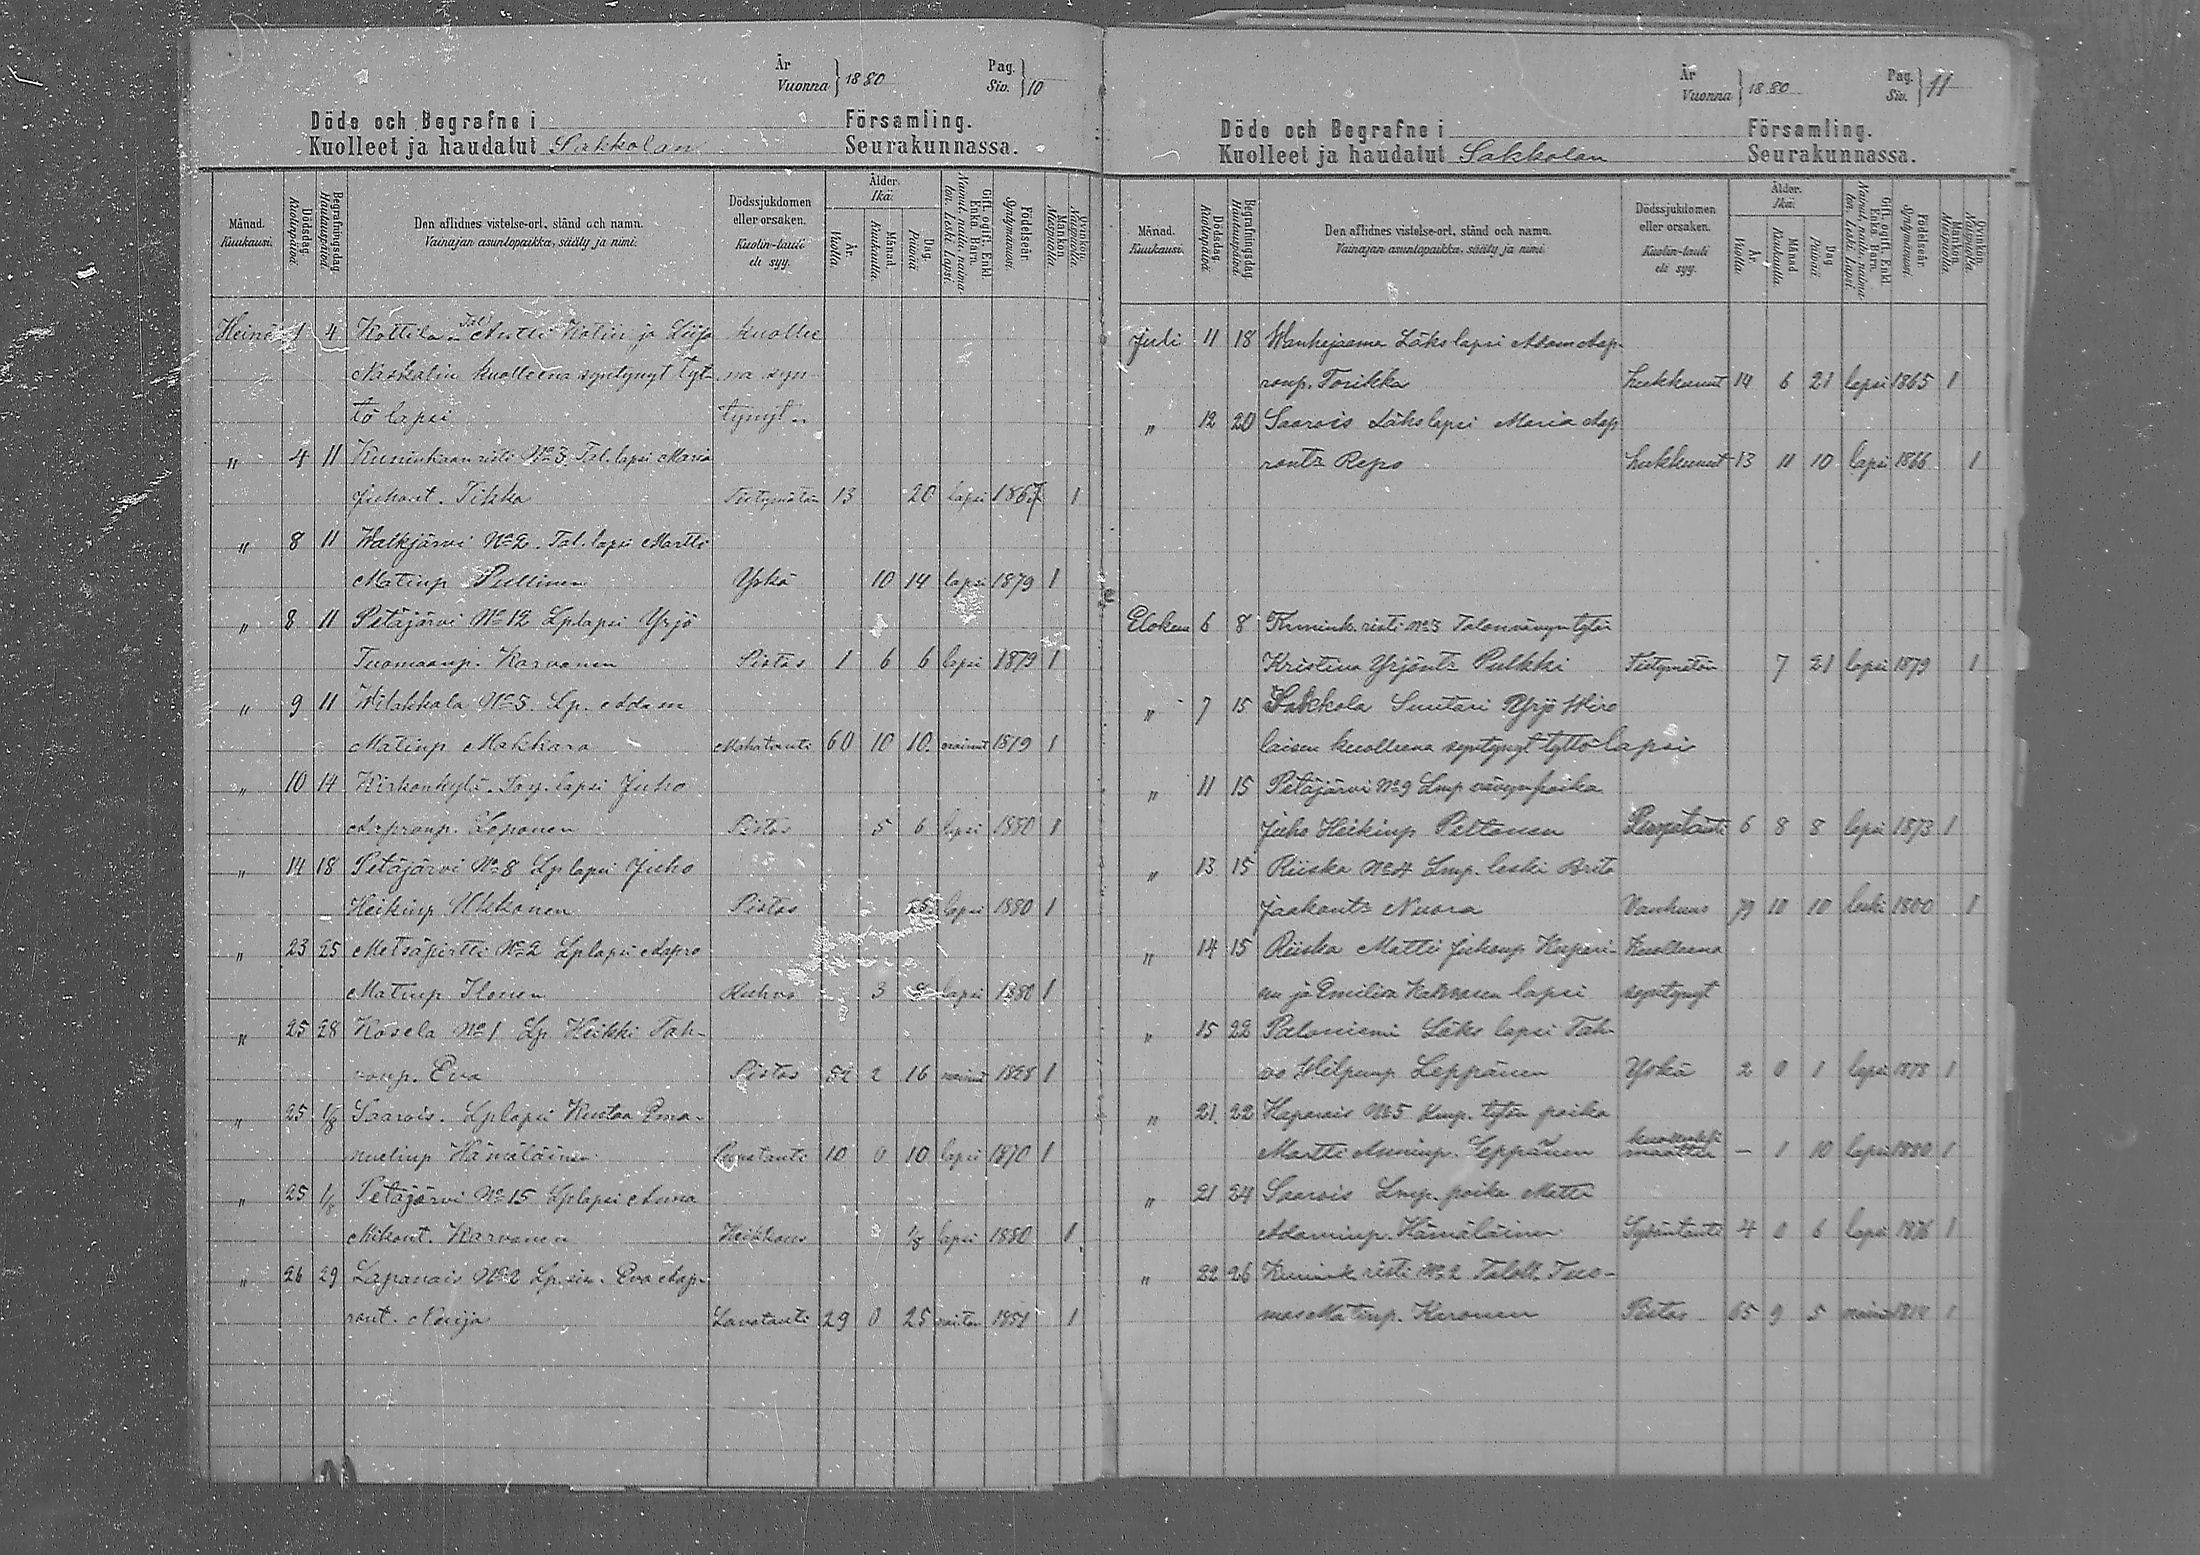 År
Vuonna } 1880
Pag.
Siv. } 10
Döde och Begrafne i Församling.
Kuolleet ja haudatut Sakkolan Seurakunnassa.
Månad. Kuukausi.
Dödsdag. Kuolopäivä.
Begrafningsdag. Hautauspäivä.
Den aflidnes vistelse-ort, stånd och namn.
Vainajan asuntopaikka, sääty ja nimi.
Dödssjukdomen eller orsaken.
Kuolin-tauti eli syy.
Ålder. Ikä.
År. Vuotta.
Månad. Kuukautta.
Dag. Päivää
Gift, ogift, Enkl. Enka, Barn.
Nainut, naitu, naimaton, leski, lapsi.
Födelseår. Syntymävuosi.
Mankön. Miespuolia.
Qvinkön. Naispuolia.
Heinä 1 4 Kottila Tal Antti Kotiin ja Liisa kuollee
Naskalin kuolleena syntynyt tyt- na syn-
tö lapsi tynyt
" 4 11 Kuninkaanristi No 3 Tal. lapsi Maria
Juhont. Tikka Tietymätön 13 20 lapsi 1867 1
" 8 11 Walkjärvi No 2. Tal. lapsi Martti
Matinp Pullinen Yskä 10 14 lapsi 1879 1
" 8 11 Petäjärvi No 12 Lplapsi Yrjö
Tuomaanp. Karvonen Pistos 1 6 6 lapsi 1879 1
" 9 11 Wilakkala No 5. Lp. Adam
Matinp Makkara Mahatauti 60 10 10 nainut 1819 1
" 10 14 Kirkonkylä. lapsi Juho
Aapronp. Leponen Pistos 5 6 lapsi 1880 1
" 14 18 Petäjärvi No 8 Lp lapsi Juho
Heikinp Ukkonen Pistos 25 lapsi 1880 1
" 23 25 Metsäpirtti No 2 Lplapsi Aapro
Matinp Ilonen 3 lapsi 1880 1
" 25 28 Kosela No 1 Lp Heikki Tah-
vonp. Eva Pistos 52 2 16 nainut 1828 1
" 25 1/8 Saarois. Lplapsi Kustaa Ema-
nuelinp Hämäläinen 10 0 10 lapsi 1870 1
" 25 1/8 Petäjärvi No 15 Lplapsi Anna
Mikont. Karvonen Heikkous 1/8 lapsi 1880 1
" 26 29 Lapanais No 2 Eva Aap-
ront. Nouja 29 0 25 1851 1
År
Vuonna } 1880
Pag.
Siv. } 11
Döde och Begrafne i Församling.
Kuolleet ja haudatut Sakkolan Seurakunnassa.
Månad. Kuukausi.
Dödsdag. Kuolopäivä.
Begrafningsdag. Hautauspäivä.
Den aflidnes vistelse-ort, stånd och namn.
Vainajan asuntopaikka, sääty ja nimi.
Dödssjukdomen eller orsaken.
Kuolin-tauti eli syy.
Ålder. Ikä.
År. Vuotta.
Månad Kuukautta
Dag Päivää
Gift, ogift, Enkl. Enka, Barn.
Nainut, naitu, naimaton, leski, lapsi.
Födelseår. Syntymävuosi.
Mankön. Miespuolia.
Qvinkön. Naispuolia.
Juli 11 18 Wanhajaama Läks lapsi Adam Aap-
ronp. Torikka hukkunut 14 6 21 lapsi 1865 1
" 12 20 Saarois Läks lapsi Maria Aap
ront Repo hukkunut 13 11 10 lapsi 1866 1
Elokuu 6 8 Kunink. risti No 3 Talonvävyn tytär
Kristina Yrjönt Pulkki Tietymätön 7 21 lapsi 1879 1
" 7 15 Sakkola Suutari Yrjö Wiro
laisen kuolleena syntynyt tyttö lapsi
" 11 15 Petäjärvi No 9 Lmp vävyn poika
Juho Heikinp Peltonen 6 8 8 lapsi 1873 1
" 13 15 Riiska No 4 Lmp. leski Brita
Jaakont Nuora Vanhuus 79 10 10 leski 1800 1
" 14 15 Riiska Matti Juhonp Kaspari- Kuolleena
nn ja Emilia lapsi syntynyt
" 15 22 Paloniemi Läks lapsi Tah-
vo Wilpunp Leppänen Yskä 2 0 1 lapsi 1878 1
" 21. 22 Haparais No 5 Lmp. tytön poika
Martti Anninp. Leppänen — 1 10 lapsi 1880 1
" 21 24 Saarois Lmp. poika Matti
Adaminp. Hämäläinen 4 0 6 lapsi 1876 1
" 22 26 Kunink risti No 2 Taloll. Tuo-
mas Matinp. Keronen Pistos 65 9 5 nainut 1814 1